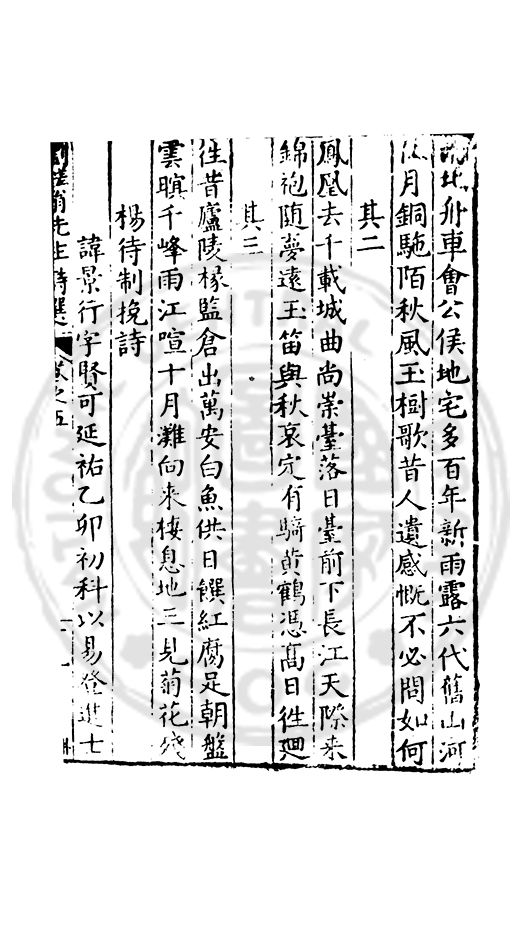 北舟車會公侯地宅多百年新雨露六代舊山河
月銅駝陌秋風玉樹歌昔人遺感慨不必問如何
其二
鳳凰去千載城曲尚崇臺落日臺前下長江天際来
錦袍随夢遠玉笛與秋哀定有騎黄鶴憑髙日徃廻
其三
徃昔廬陵椽監倉出萬安白魚供日饌紅腐足朝盤
雲暝千峰雨江喧十月灘向来棲息地三見菊花殘
楊待制挽詩
諱景行字賢可延祐乙卯初科以易登進士
翁先生詩選
卷之五